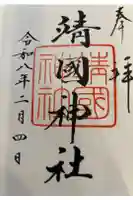 奉拝
靖國神社
令和八年二月四日
靖國神社